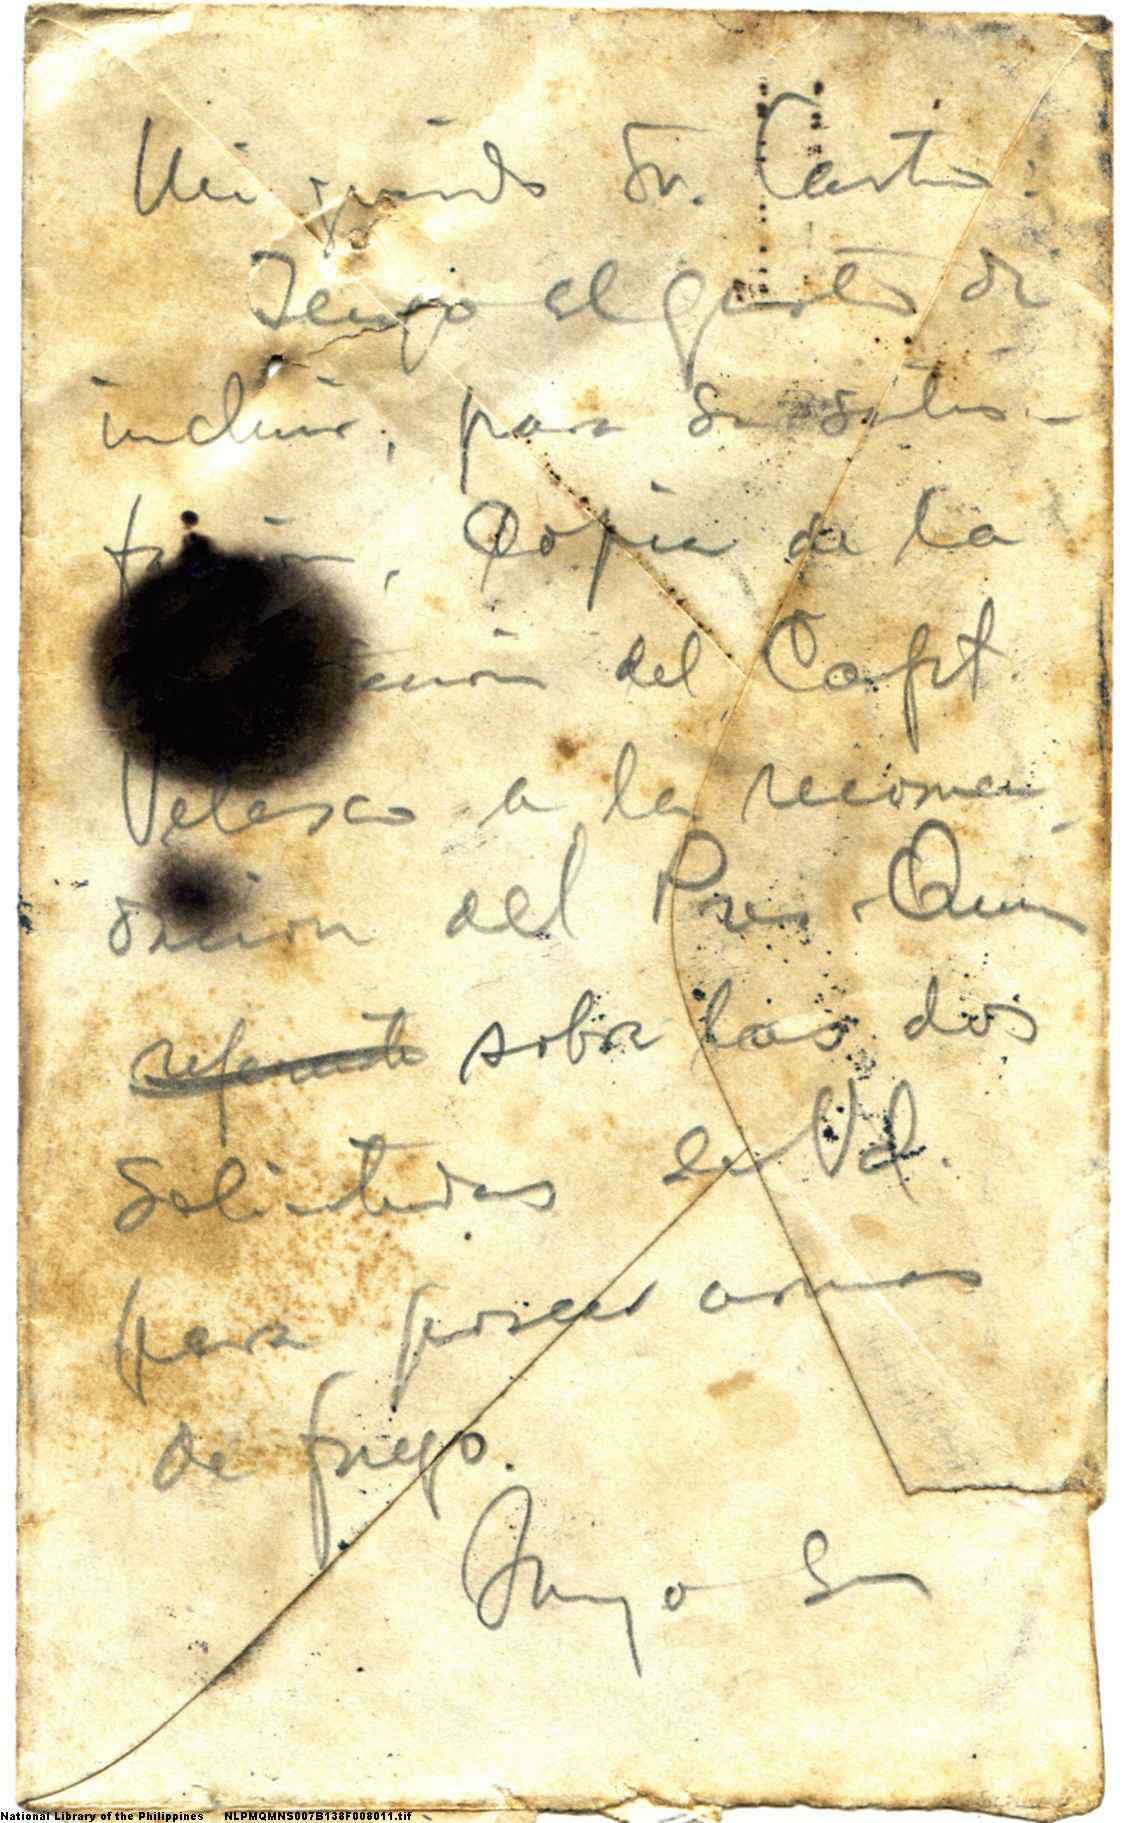 Mi querido Sr. Castro:
Tengo el gusto de
incluir, para su satis-
facción, Copia de la
del Capt.
Velasco a la recomen
dacion del Pres. Quirino
referente sobre las dos
solicitudes de Vd.
para poseer armas
de fuego.
Suyo
National Library of the Philippines NLPMQMNS007B138F008011.tif